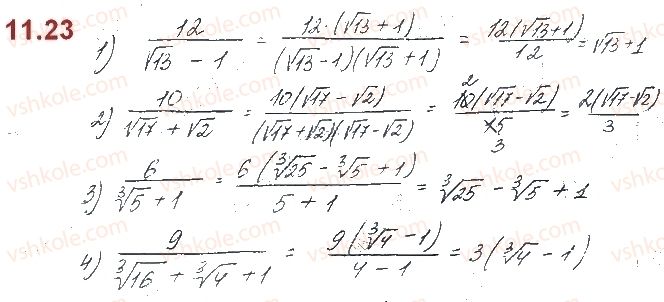 11.23
1) \frac{12}{\sqrt{13} - 1} = \frac{12 \cdot (\sqrt{13} + 1)}{(\sqrt{13} - 1)(\sqrt{13} + 1)} = \frac{12(\sqrt{13} + 1)}{12} = \sqrt{13} + 1
2) \frac{10}{\sqrt{17} + \sqrt{2}} = \frac{10(\sqrt{17} - \sqrt{2})}{(\sqrt{17} + \sqrt{2})(\sqrt{17} - \sqrt{2})} = \frac{\overset{2}{\cancel{10}}(\sqrt{17} - \sqrt{2})}{\underset{3}{\cancel{15}}} = \frac{2(\sqrt{17} - \sqrt{2})}{3}
3) \frac{6}{\sqrt[3]{5} + 1} = \frac{6(\sqrt[3]{25} - \sqrt[3]{5} + 1)}{5 + 1} = \sqrt[3]{25} - \sqrt[3]{5} + 1
4) \frac{9}{\sqrt[3]{16} + \sqrt[3]{4} + 1} = \frac{9(\sqrt[3]{4} - 1)}{4 - 1} = 3(\sqrt[3]{4} - 1)
vshkole.com